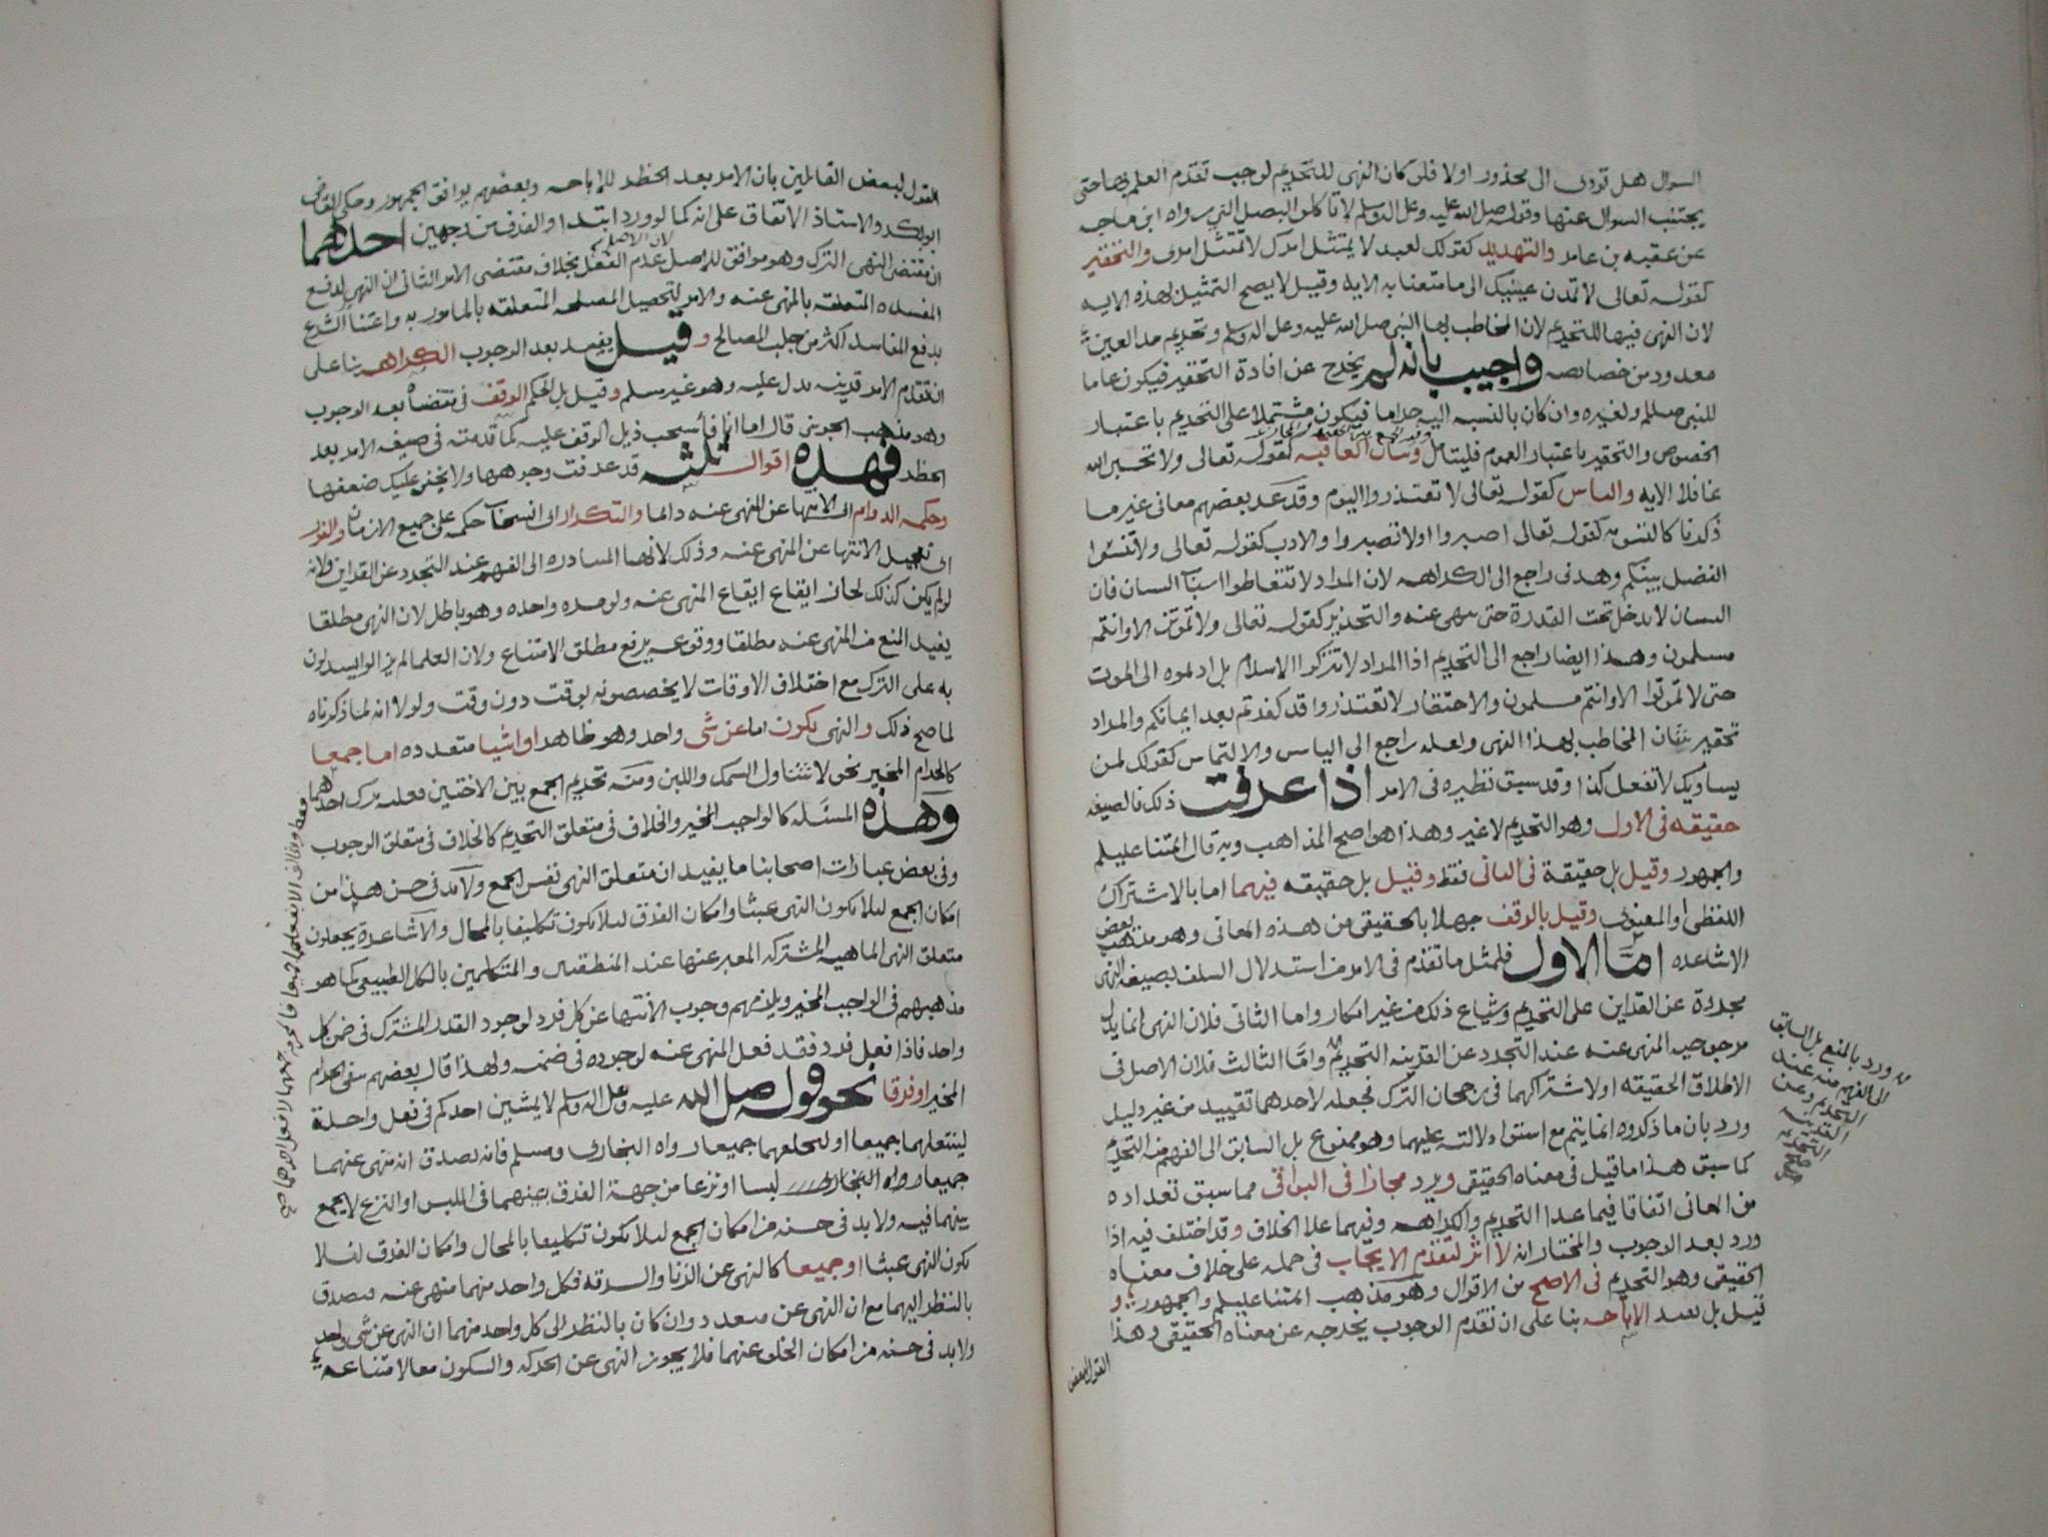 السوال هل تودى الى محذور اولا فلو كان النهى للتحريم لوجب تقدم العلم بها حتى
يجتنب السوال عنها وقوله صلى الله عليه وعلى اله وسلم لا تاكلوا البصل النى رواه ابن ماجه
عن عقبه بن عامر والتهديد كقولك لعبد لا يمتثل امرك لا تمتثل امرى والتحقير
كقوله تعالى لا تمدن عينيك الى ما متعنا به الايه وقيل لا يصح التمثيل بهذه الايه
لان النهى فيها للتحريم لان المخاطب بها النبى صلى الله عليه وعلى اله وسلم وتحريم مد العين
معدود من خصائصه واجيب بانه لم يخرج عن افادة التحقير فيكون عاما
للنبى صللم ولغيره وان كان بالنسبه اليه حراما فيكون مشتملا على التحريم باعتبار
الخصوص والتحقير باعتبار العموم فليتامل وبيان العاقبه كقوله تعالى ولا تحسبن الله
غافلا الايه والياس كقوله تعالى لا تعتذروا اليوم وقد عد بعضهم معانى غير ما
ذكرنا كالتسويه كقوله تعالى اصبروا اولا تصبروا والادب كقوله تعالى ولا تنسوا
الفضل بينكم وهدى راجع الى الكراهه لان المراد لا تتعاطوا اسباب النسيان فان
النسيان لا يدخل تحت القدرة حتى ينهى عنه والتحذير كقوله تعالى ولا تموتن الا وانتم
مسلمون وهذا ايضا راجع الى التحريم اذا المراد لا تتركوا الاسلام بل ادلموه الى الموت
حتى لا تموتوا الا وانتم مسلمون والاحتقار لا تعتذروا قد كفرتم بعد ايمانكم والمراد
تحقير شان المخاطب بهذا النهى ولعله راجع الى الياس والالتماس كقولك لمن
يساويك لا تفعل كذا وقد سبق نظيره فى الامر اذا عرفت ذلك فالصيغه
حقيقه فى الاول وهو التحريم لا غير وهذا هو اصح المذاهب وبه قال ائمتنا عليلم
والجمهور وقيل بل حقيقة فى الثانى فقط وقيل بل حقيقه فيهما اما بالاشتراك
اللفظى او المعنوى وقيل بالوقف جهلا بالحقيقى من هذه المعانى وهو مذهب بعض
الاشاعده اما الاول فلمثل ما تقدم فى الامر من استدلال السلف بصيغه النهى
مجردة عن القراين على التحريم وشياع ذلك من غير انكار واما الثانى فلان النهى انما يدل
مرجوحيه المنهى عنه عند التجرد عن القرينه التحريم واما الثالث فلان الاصل فى
الاطلاق الحقيقه اولاشتراكهما فى رجحان الترك فجعله لاحدهما تقييد من غير دليل
ورد بان ما ذكروه انما يتم مع استوا دلالته عليهما وهو ممنوع بل السابق الى الفهم منه التحريم
كما سبق هذا ما قيل فى معناه الحقيقى ويرد مجازا فى البواقى مما سبق تعداده
من المعانى اتفاقا فيما عدا التحريم والكراهه وفيهما علا الخلاف وقد اختلف فيه اذا
ورد بعد الوجوب والمختار انه لا اثر لتقدم الايجاب فى حمله على خلاف معناه
الحقيقى وهو التحريم فى الاصح من الاقوال وهو مذهب ائمتنا عليلم والجمهور و
قيل بل يفيد الاباحه بنا على ان تقدم الوجوب يخرجه عن معناه الحقيقى وهذا
القول لبعض
ورد بالمنع بل السابق
الى الفهم منه عند
التجرد عن
القرينه
التحريم
القول لبعض القائلين بان الامر بعد الحظر للاباحه وبعضهم يوافق الجمهور وحكى القاضى
ابو بكر والاستاذ الاتفاق على انه كما لو ورد ابتدا والفرق من وجهين احدهما
ان مقتضى النهى الترك وهو موافق للاصل لان الاصل عدم الفعل بخلاف مقتضى الامر الثانى ان النهى لدفع
المفسده المتعلقه بالمنهى عنه والامر لتحصيل المصلحه المتعلقه بالمامور به واعتنا الشرع
بدفع المفاسد اكثر من جلب المصالح وقيل يفيد بعد الوجوب الكراهه بنا على
ان تقدم الامر قرينه تدل عليه وهو غير مسلم وقيل بل الحكم الوقف فى مقتضاه بعد الوجوب
وهو مذهب الجوينى قال اما انا فاسحب ذيل الوقف عليه كما قدمته فى صيغه الامر بعد
الحظر فهذه اقوال ثلثه قد عرفت وجوهها ولا يخفى عليك ضعفها
وحكمه الدوام اى الانتها عن المنهى عنه دائما والتكرار اى انسحاب حكمه على جميع الازمان والفور
اى تعجيل الانتها عن المنهى عنه وذلك لانها المتبادره الى الفهم عند التجرد عن القراين ولانه
لو لم يكن كذلك لجاز ايقاع ايقاع المنهى عنه ولو مره واحده وهو باطل لان النهى مطلقا
يفيد المنع من المنهى عنه مطلقا ووقوعه يرفع مطلق الامتناع ولان العلما لم يزالوا يستدلون
به على الترك مع اختلاف الاوقات لا يخصصونه بوقت دون وقت ولولا انه لما ذكرناه
لما صح ذلك والنهى يكون اما عن شى واحد وهو ظاهر او اشيا متعدده اما جمعا
كالحرام المخير نحو لا تتناول السمك واللبن ومنه تحريم الجمع بين الاختين فعليه ترك احدهما
وهذه المسئله كالواجب المخير والخلاف فى متعلق التحريم كالخلاف فى متعلق الوجوب
وفى بعض عبارات اصحابنا ما يفيد ان متعلق النهى نفس الجمع ولا بد فى حسن هذا من
امكان الجمع ليلا يكون النهى عبثا وامكان الفرق ليلا يكون تكليفا بالمحال والاشاعرة يجعلون
متعلق النهى الماهيه المشتركه المعبر عنها عند المنطقيين والمتكلمين بالكلى الطبيعى كما هو
مذهبهم فى الواجب المخير ويلزمهم وجوب الانتها عن كل فرد لوجود القدر المشترك فى ضمن كل
واحد فاذا فعل فرد فقد فعل المنهى عنه لوجوده فى ضمنه ولهذا قال بعضهم بنفى الحرام
المخير او فرقا نحو قوله صلى الله عليه وعلى اله وسلم لا يمشين احدكم فى نعل واحدة
لينتعلهما جميعا او ليخلعهما جميعا رواه البخارى ومسلم فانه يصدق انه منهى عنهما
جميعا رواه البخارى لبسا او نزعا من جهة الفرق بينهما فى اللبس او النزع لا يجمع
بينهما فيه ولا بد فى حسنه من امكان الجمع ليلا يكون تكليفا بالمحال وامكان الفرق لئلا
يكون النهى عبثا او جميعا كالنهى عن الزنا والسرقه فكل واحد منهما منهى عنه فيصدق
بالنظر اليهما مع ان النهى عن متعدد وان كان بالنظر الى كل واحد منهما ان النهى عن شى واحد
ولا بد فى حسنه من امكان الخلو عنهما فلا يجوز النهى عن الحركه والسكون معا لامتناعه